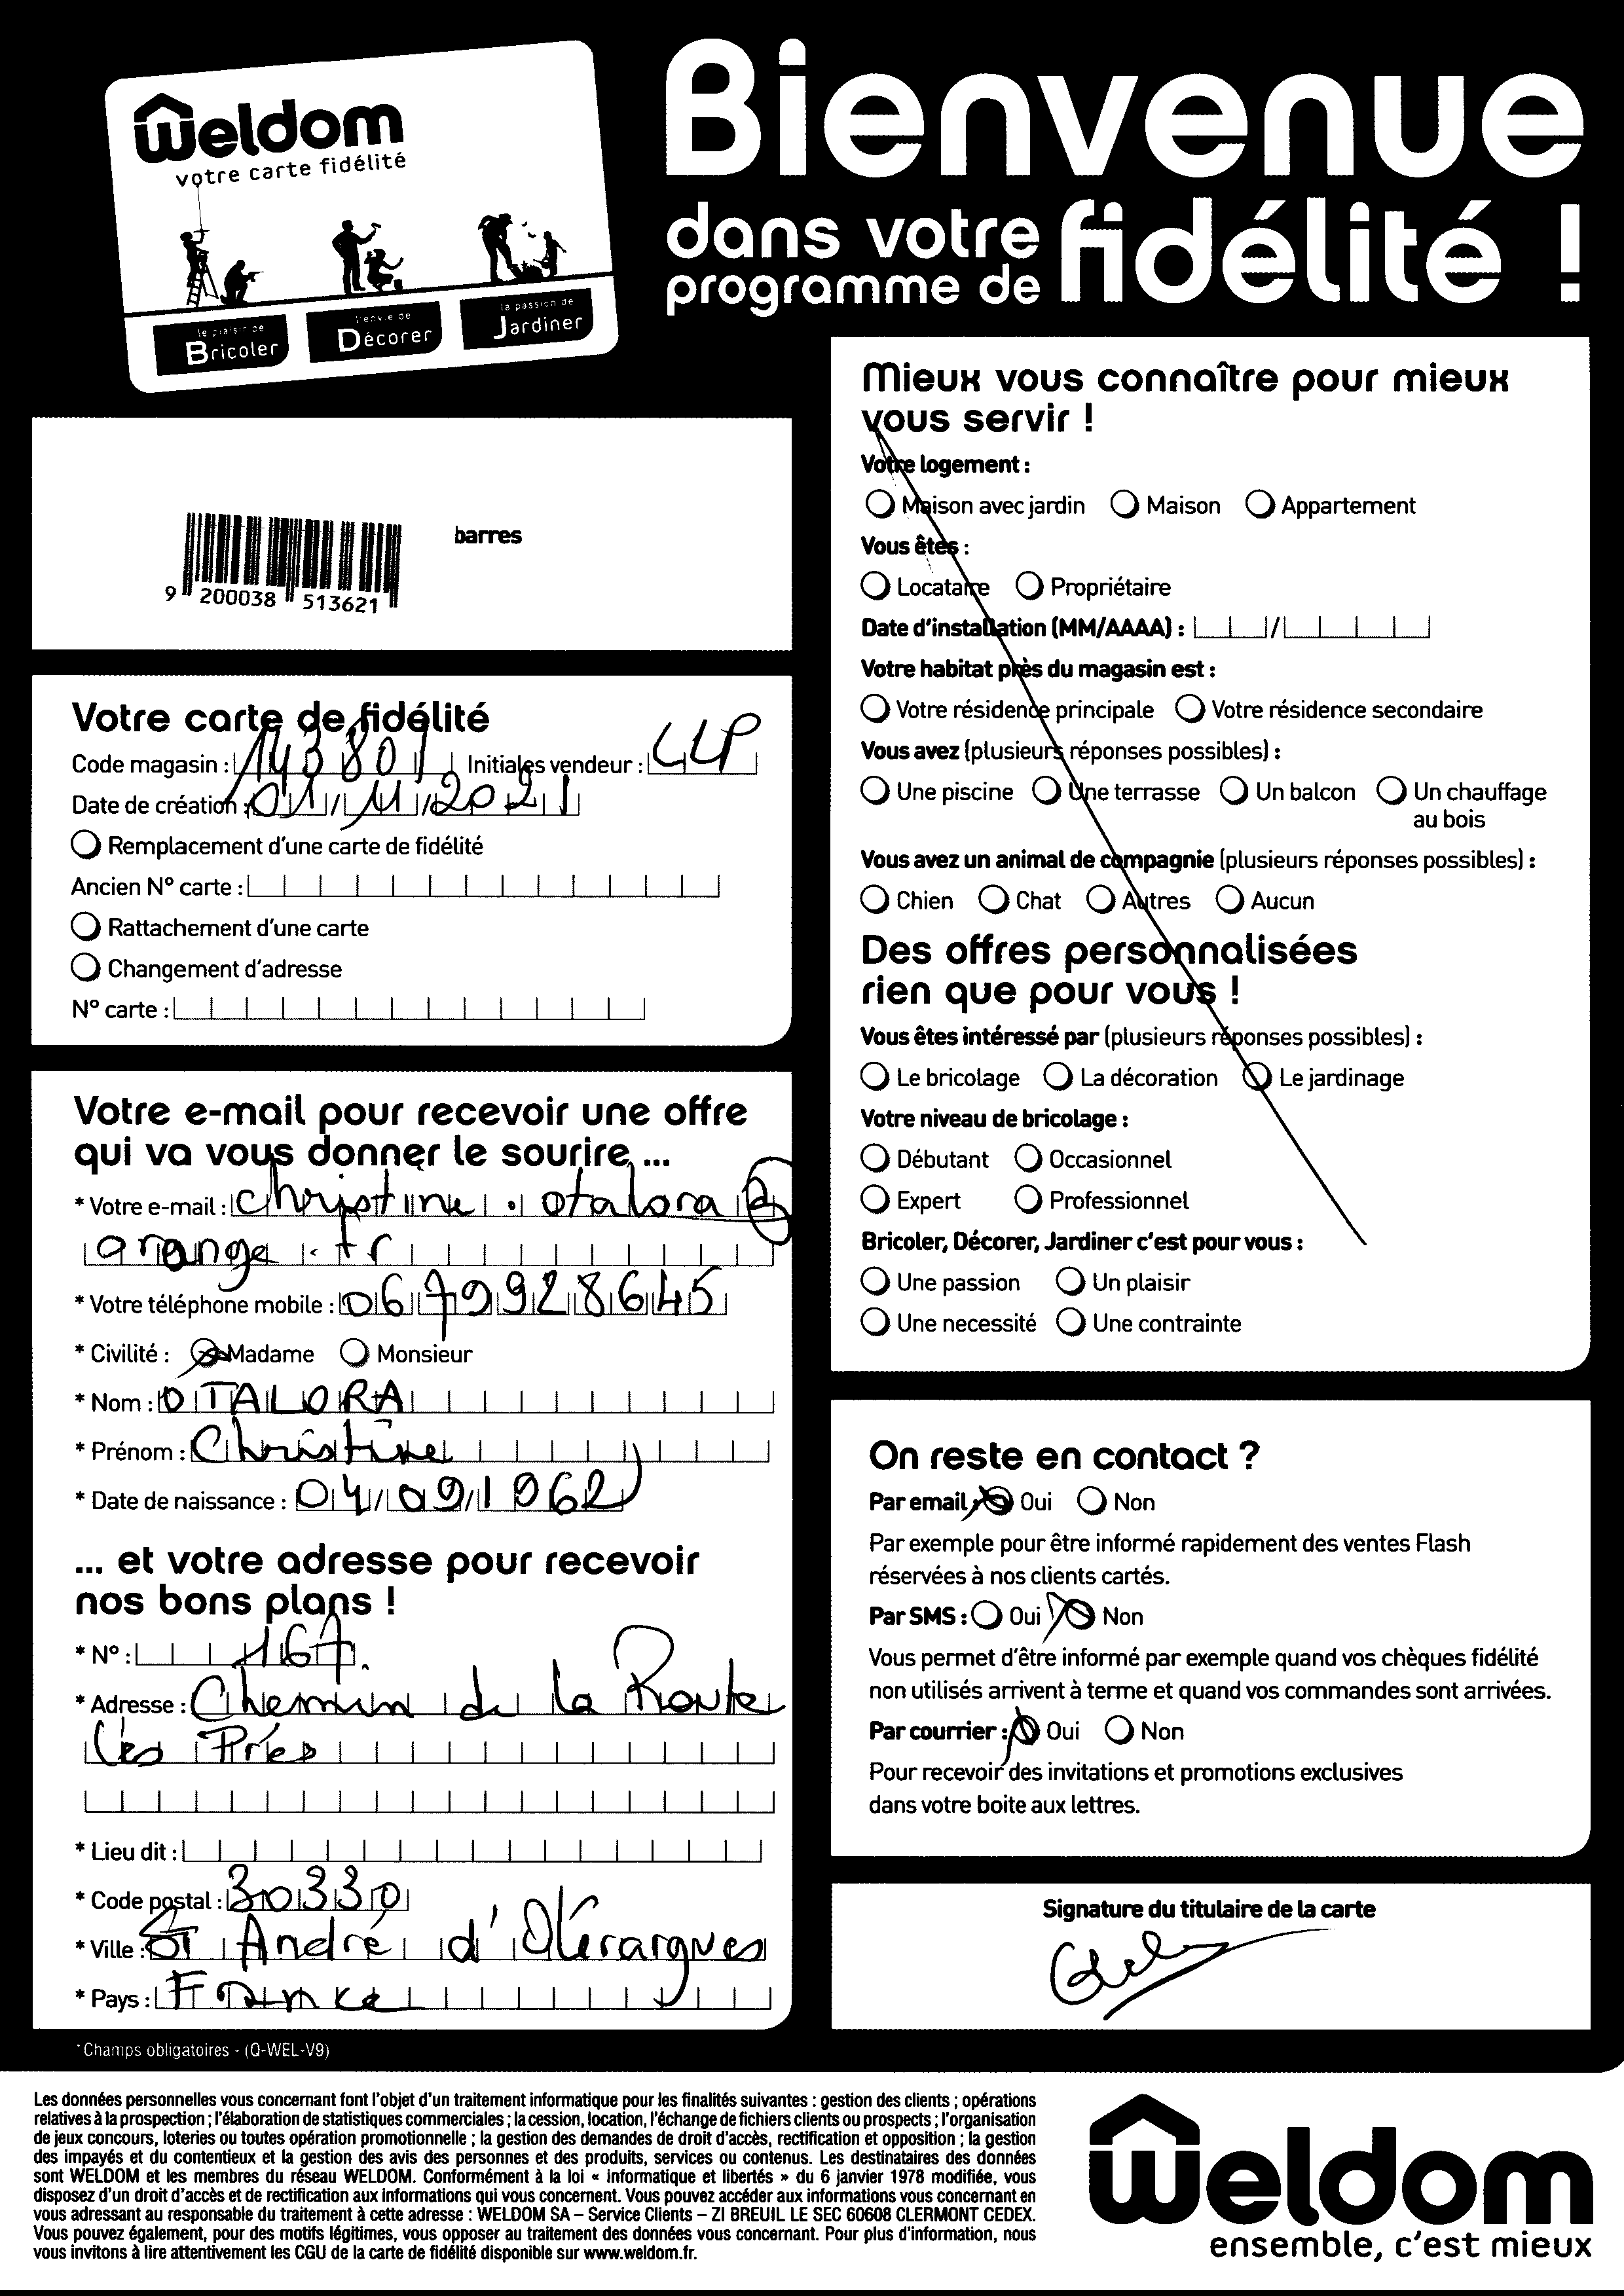 Weldom
votre carte fidélité
le plaisir de
Bricoler
l'envie de
Décorer
la passion de
Jardiner
Bienvenue
dans votre
programme de
fidélité !
barres
9 200038 513621
Votre carte de fidélité
Code magasin : 143801 Initiales vendeur : LLP
Date de création : 01/11/2021
Remplacement d'une carte de fidélité
Ancien N° carte :
Rattachement d'une carte
Changement d'adresse
N° carte :
Votre e-mail pour recevoir une offre
qui va vous donner le sourire ...
* Votre e-mail : christine.otalora@
orange.fr
* Votre téléphone mobile : 0679928645
* Civilité : Madame Monsieur
* Nom : OTALORA
* Prénom : Christine
* Date de naissance : 04/09/1962
... et votre adresse pour recevoir
nos bons plans !
* N° : 167.
* Adresse : Chemin de la Route
Les Prés
* Lieu dit :
* Code postal : 30330
* Ville : St André d'Olérargues
* Pays : France
* Champs obligatoires - (Q-WEL-V9)
Mieux vous connaître pour mieux
vous servir !
Votre logement :
Maison avec jardin Maison Appartement
Vous êtes :
Locataire Propriétaire
Date d'installation (MM/AAAA) : /
Votre habitat près du magasin est :
Votre résidence principale Votre résidence secondaire
Vous avez (plusieurs réponses possibles) :
Une piscine Une terrasse Un balcon Un chauffage
au bois
Vous avez un animal de compagnie (plusieurs réponses possibles) :
Chien Chat Autres Aucun
Des offres personnalisées
rien que pour vous !
Vous êtes intéressé par (plusieurs réponses possibles) :
Le bricolage La décoration Le jardinage
Votre niveau de bricolage :
Débutant Occasionnel
Expert Professionnel
Bricoler, Décorer, Jardiner c'est pour vous :
Une passion Un plaisir
Une necessité Une contrainte
On reste en contact ?
Par email : Oui Non
Par exemple pour être informé rapidement des ventes Flash
réservées à nos clients cartés.
Par SMS : Oui Non
Vous permet d'être informé par exemple quand vos chèques fidélité
non utilisés arrivent à terme et quand vos commandes sont arrivées.
Par courrier : Oui Non
Pour recevoir des invitations et promotions exclusives
dans votre boite aux lettres.
Signature du titulaire de la carte
Les données personnelles vous concernant font l'objet d'un traitement informatique pour les finalités suivantes : gestion des clients ; opérations
relatives à la prospection ; l'élaboration de statistiques commerciales ; la cession, location, l'échange de fichiers clients ou prospects ; l'organisation
de jeux concours, loteries ou toutes opération promotionnelle ; la gestion des demandes de droit d'accès, rectification et opposition ; la gestion
des impayés et du contentieux et la gestion des avis des personnes et des produits, services ou contenus. Les destinataires des données
sont WELDOM et les membres du réseau WELDOM. Conformément à la loi « informatique et libertés » du 6 janvier 1978 modifiée, vous
disposez d'un droit d'accès et de rectification aux informations qui vous concernent. Vous pouvez accéder aux informations vous concernant en
vous adressant au responsable du traitement à cette adresse : WELDOM SA – Service Clients – ZI BREUIL LE SEC 60608 CLERMONT CEDEX.
Vous pouvez également, pour des motifs légitimes, vous opposer au traitement des données vous concernant. Pour plus d'information, nous
vous invitons à lire attentivement les CGU de la carte de fidélité disponible sur www.weldom.fr.
Weldom
ensemble, c'est mieux